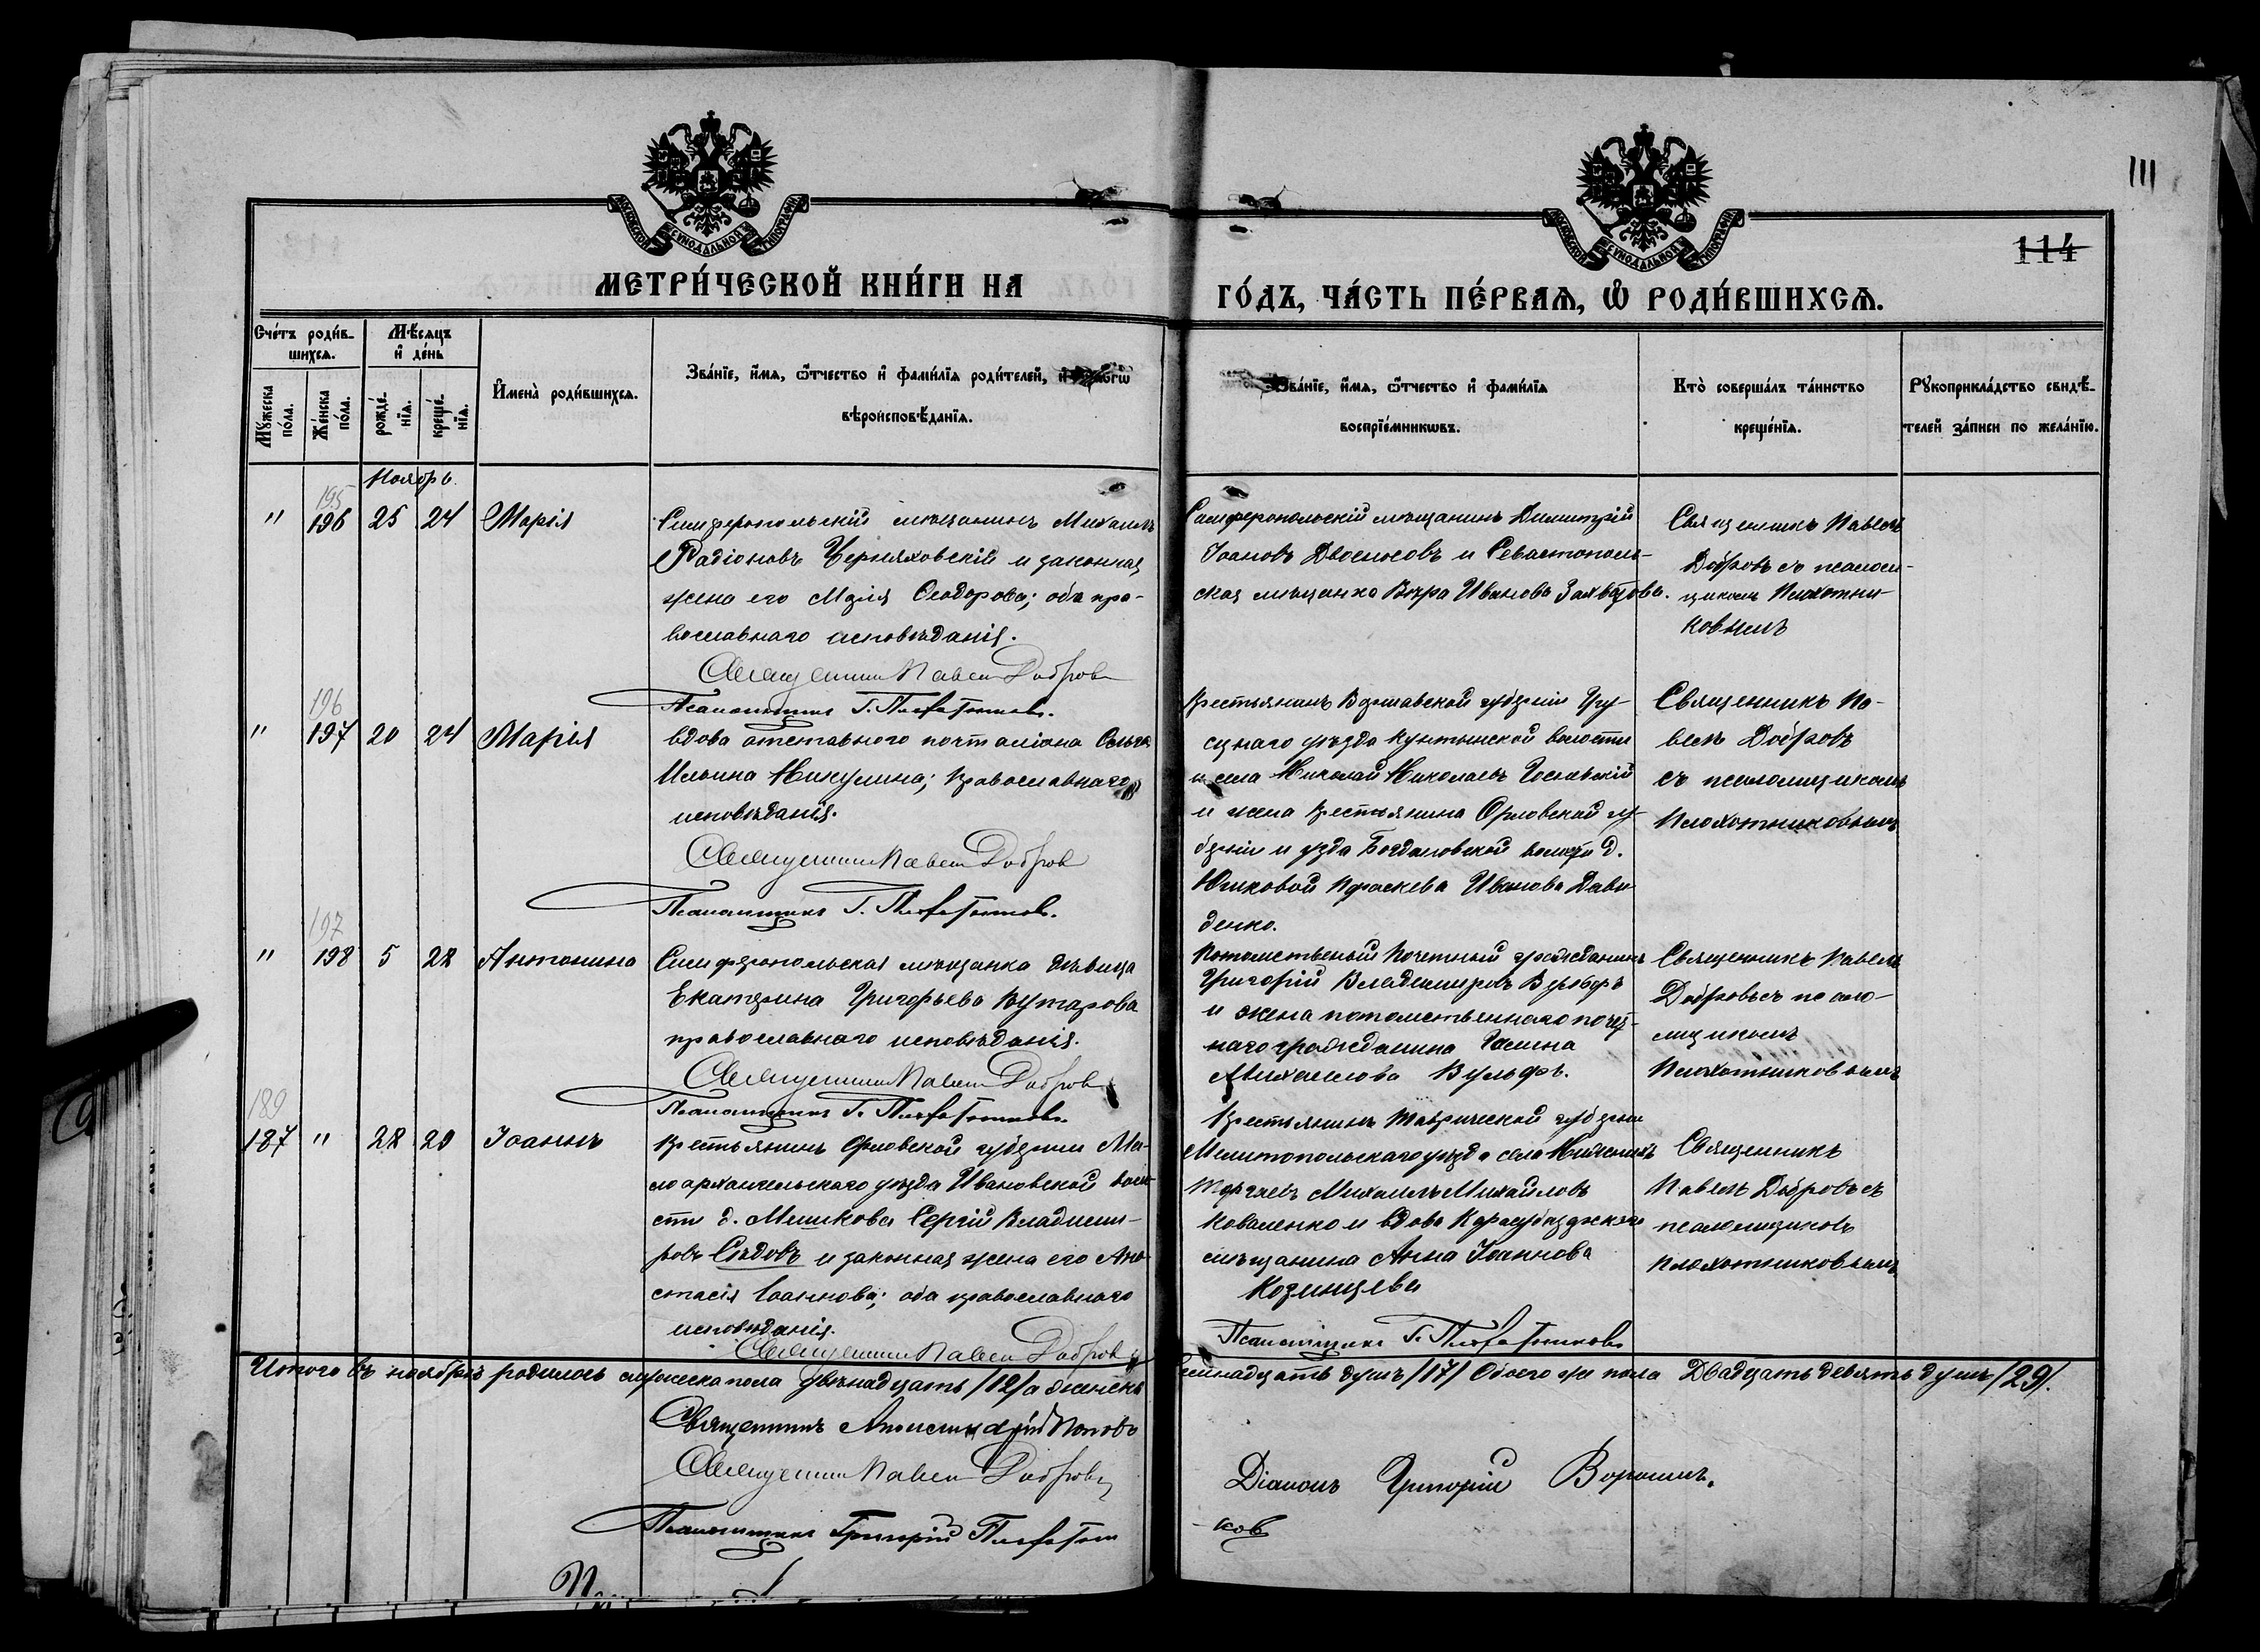 111
МОСКОВСКОЙ СУНОДАЛЬНОЙ ТИПОГРАФІИ
МОСКОВСКОЙ СУНОДАЛЬНОЙ ТИПОГРАФІИ
114
МЕТРИ́ЧЕСКОЙ КНИ́ГИ НА
ГО́ДЪ, ЧА́СТЬ ПЕ́РВАѦ, Ѡ РОДИ́ВШИХСѦ.
Сче́тъ роди́в-
шихсѧ.
Мꙋжеска по́ла.
Же́нска по́ла.
Мѣ́сѧцъ
и҆ де́нь
рожде́-
нїѧ.
креще́-
нїѧ.
И҆мена̀ роди́вшихсѧ.
Зва́нїе, и҆́мѧ, ѻ҆́тчество и҆ фами́лїѧ роди́телей, и҆
вѣроисповѣ́данїѧ.
Зва́нїе, и҆́мѧ, ѻ҆́тчество и҆ фами́лїѧ
воспрїе́мникѡвъ.
Кто̀ соверша́лъ та́инство
креще́нїѧ.
Рꙋкоприкла́дство свидѣ́-
телей за́писи по жела́нїю.
Ноябрь.
195
" 196 25 24 Марія
Симферопольскій мѣщанинъ Михаилъ
Радіоновъ Черняховскій и законная
жена его Марія Ѳеодорова; оба пра-
вославнаго исповѣданія.
Священникъ Павелъ Добровъ
Псаломщикъ Г. Плохотниковъ.
Симферопольскій мѣщанинъ Димитрій
Іоановъ и Севастополь-
ская мѣщанка Вѣра Иванова
Священникъ Павелъ
Добровъ съ псалом-
щикомъ Плохотни-
ковымъ
196
" 197 20 24 Марія
вдова отставного почталіона Ольга
Ильина Никулина; православнаго
исповѣданія.
Священникъ Павелъ Добровъ
Псаломщикъ Г. Плохотниковъ.
Крестьянинъ Варшавской губерніи Гру-
ецкаго уѣзда волости
и села Николай Николаевъ
и жена крестьянина Орловской гу-
берніи и уѣзда Богдановской волости д.
Юшковой Параскева Иванова Дави-
денко.
Священникъ Па-
велъ Добровъ
съ псаломщикомъ
Плохотниковымъ
197
" 198 5 28 Антонина
Симферопольская мѣщанка дѣвица
Екатерина Григорьева
православнаго исповѣданія.
Священникъ Павелъ Добровъ
Псаломщикъ Г. Плохотниковъ.
Потомственный Почетный гражданинъ
Григорій Владимировъ
и жена потомственнаго почет-
наго гражданина Галина
Михаилова Вульфъ.
Священникъ Павелъ
Добровъ съ псало-
мщикомъ
Плохотниковымъ
189
187 " 28 29 Іоаннъ
Крестьянинъ Орловской губерніи Ма-
лоархангельскаго уѣзда Ивановской воло-
сти д. Мишкова Сергій Владими-
ровъ Сѣдовъ и законная жена его Ана-
стасія Іоаннова; оба православнаго
исповѣданія.
Священникъ Павелъ Добровъ
Крестьянинъ Таврической губерніи
Мелитопольскаго уѣзда села Нижнихъ
Торгаевъ Михаилъ Михайловъ
Коваленко и вдова Карасубазарскаго
мѣщанина Анна Іоаннова
Козинцева
Псаломщикъ Г. Плохотниковъ
Священникъ
Павелъ Добровъ съ
псаломщикомъ
Плохотниковымъ
Итого въ ноябрѣ родилось мужеска пола двѣнадцать /12/ а женска семнадцать душъ /17/ Обоего же пола Двадцать девять душъ /29/.
Священникъ Поповъ
Священникъ Павелъ Добровъ
Діаконъ Григорій Воронинъ.
Псаломщикъ Григорій Плохотни-
ковъ